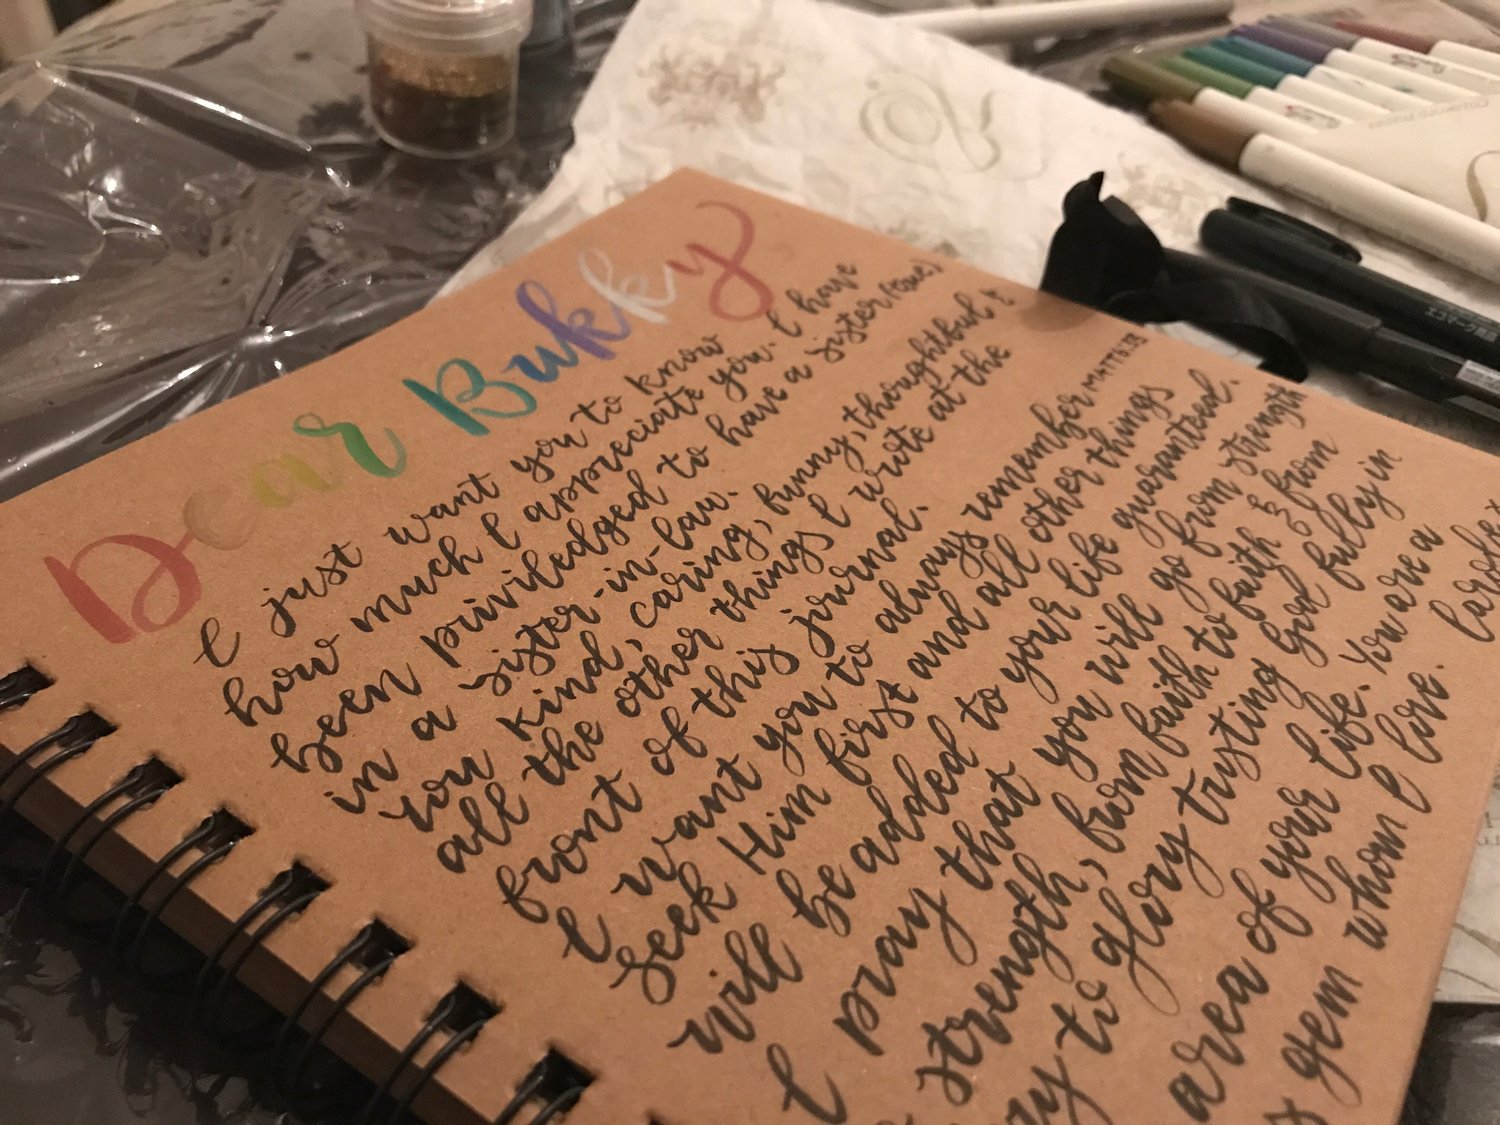 Dear Bukky
I just want you to know
how much I appreciate you. I have
been priviledged to have a sister
in a sister-in-law.
You kind, caring, funny, thoughtful &
all the other things I wrote at the
front of this journal.
I want you to always remember MATT 6:33
Seek Him first and all other things
will be added to your life guaranteed.
I pray that you will go from strength
strength, from faith to faith & from
to glory trusting God fully in
area of your life. You are a
gem whom I love.